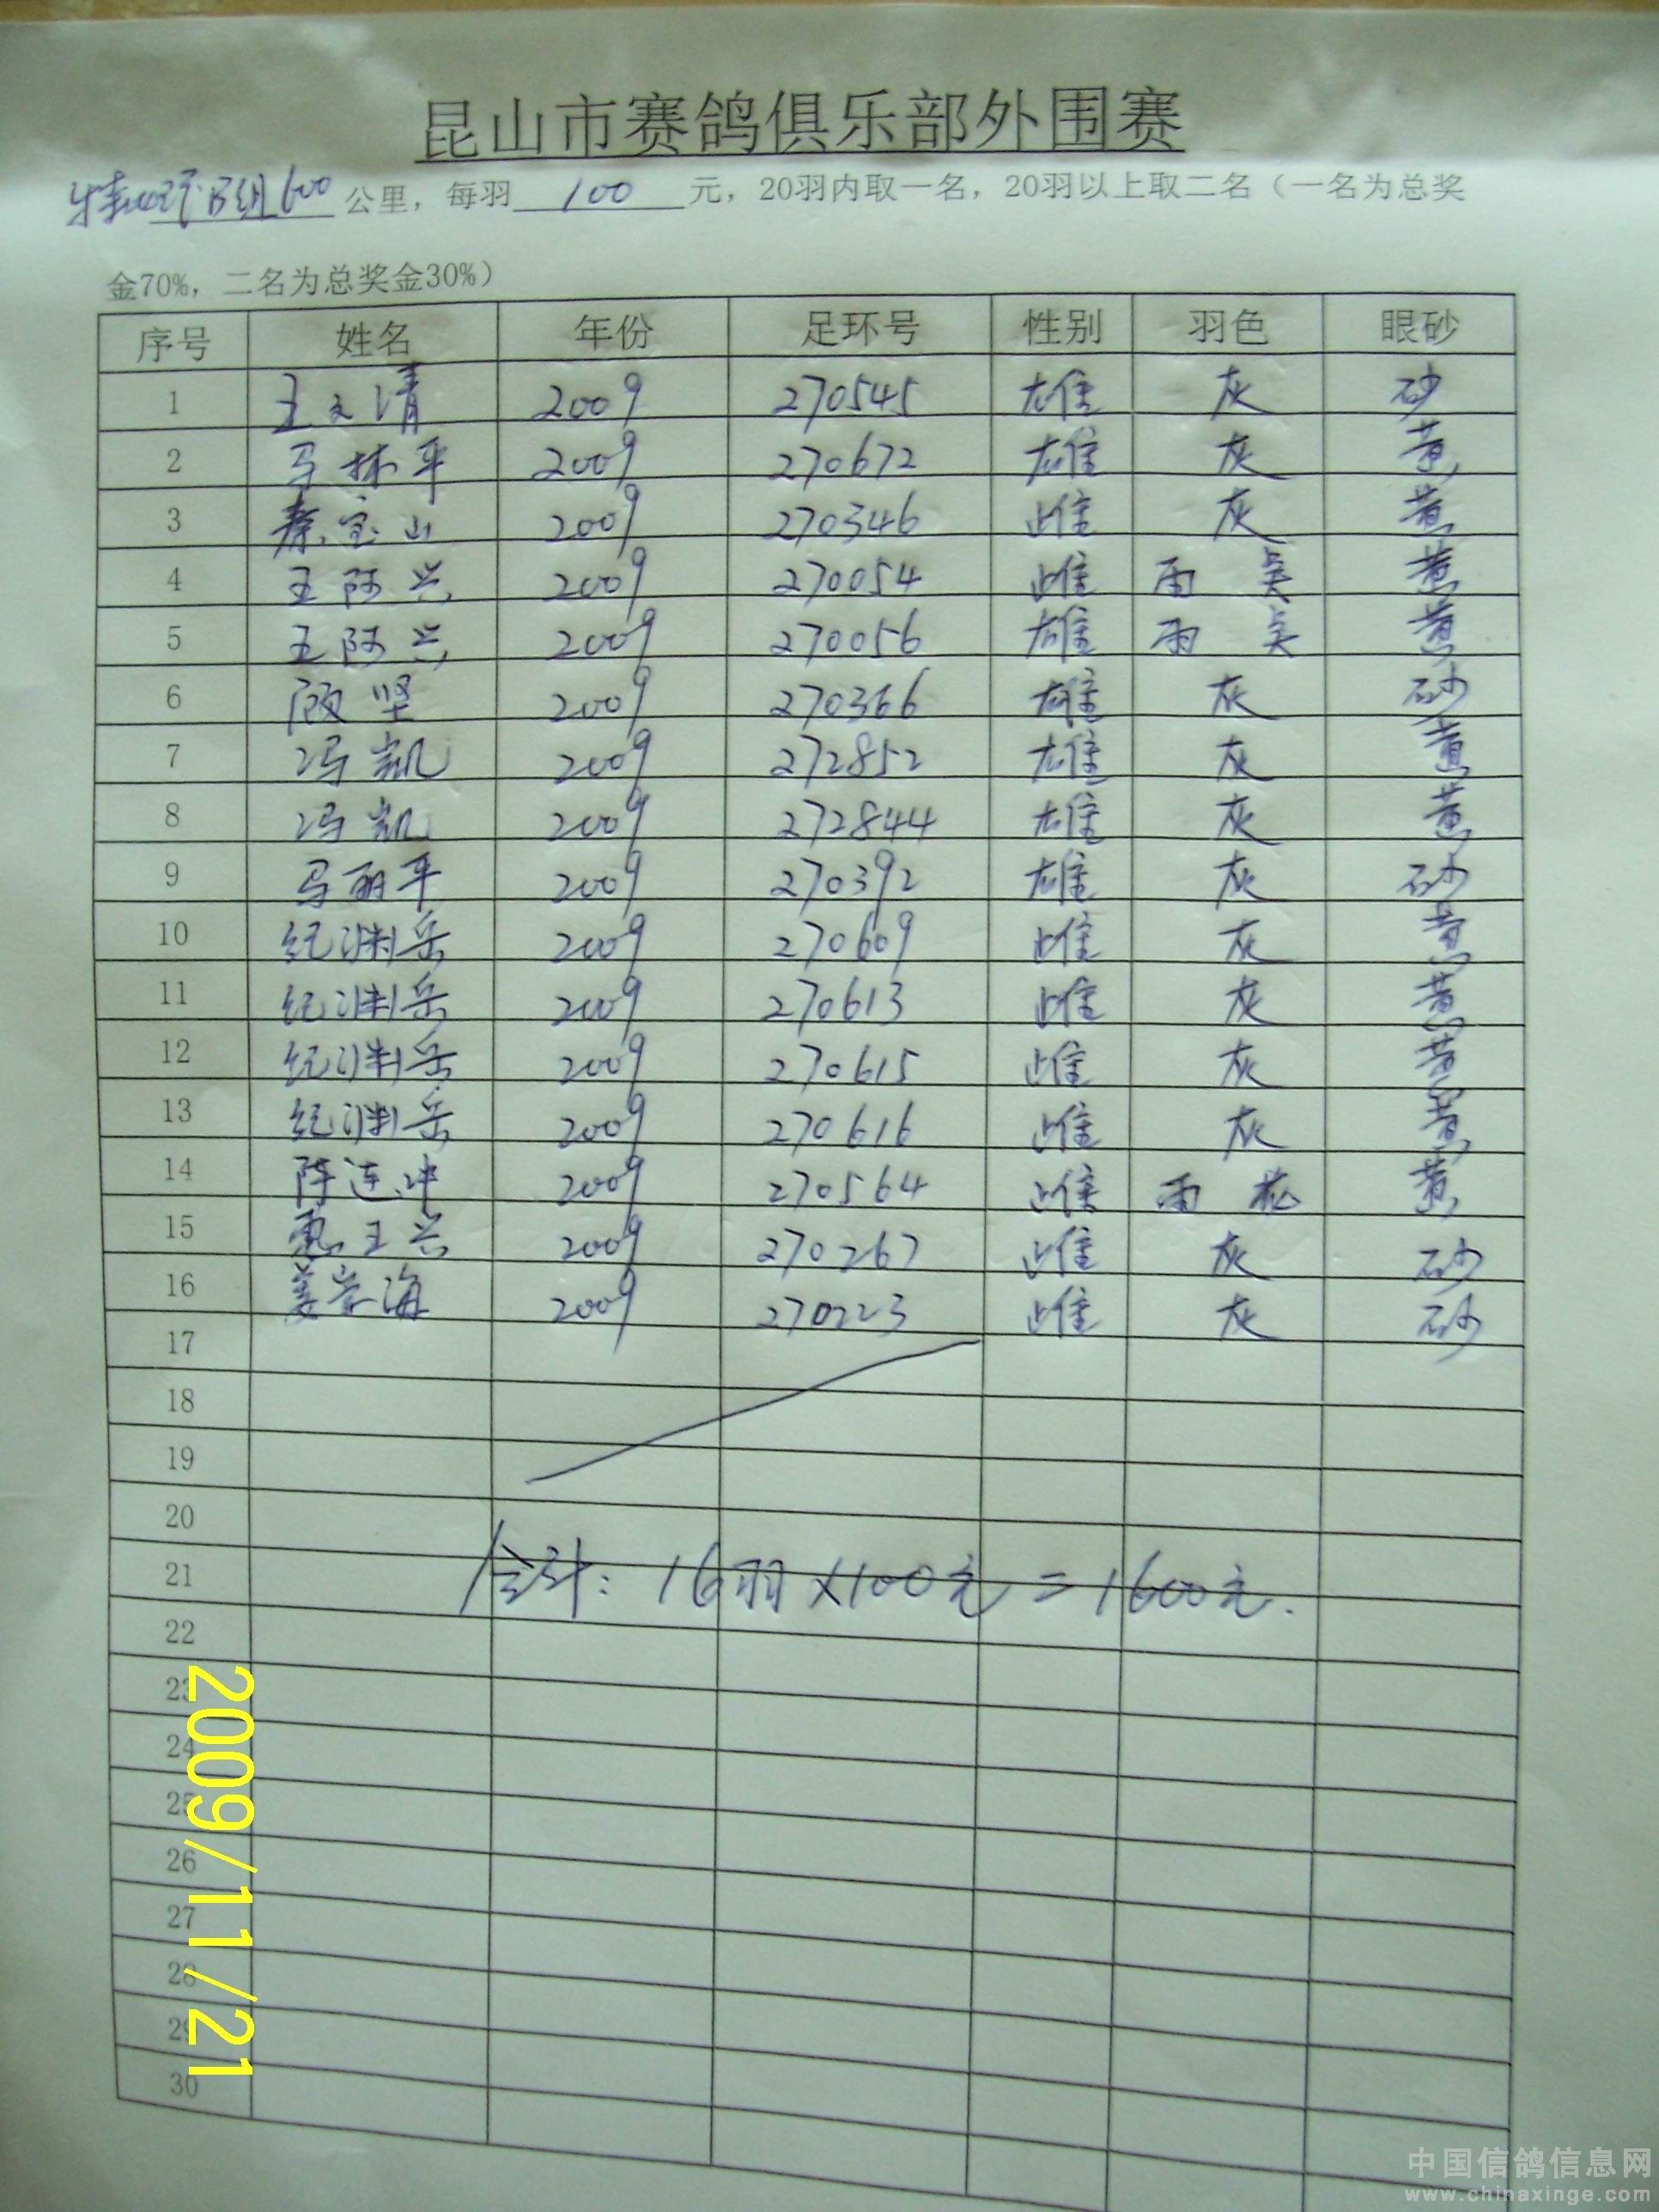 昆山市赛鸽俱乐部外围赛
特比环B组600公里，每羽100元，20羽内取一名，20羽以上取二名（一名为总奖
金70%，二名为总奖金30%）
序号 姓名 年份 足环号 性别 羽色 眼砂
1 王文清 2009 270545 雄 灰 砂
2 马林平 2009 270672 雄 灰 黄
3 秦宝山 2009 270346 雌 灰 黄
4 王阿兴 2009 270054 雌 雨 黄
5 王阿兴 2009 270056 雄 雨 黄
6 顾坚 2009 270366 雄 灰 砂
7 冯凯 2009 272852 雄 灰 黄
8 冯凯 2009 272844 雄 灰 黄
9 马丽平 2009 270392 雄 灰 砂
10 纪渊岳 2009 270609 雌 灰 黄
11 纪渊岳 2009 270613 雌 灰 黄
12 纪渊岳 2009 270615 雌 灰 黄
13 纪渊岳 2009 270616 雌 灰 黄
14 陈连冲 2009 270564 雌 雨花 黄
15 惠王兴 2009 270267 雌 灰 砂
16 姜岸海 2009 270223 雌 灰 砂
17
18
19
20
21
合计：16羽×100元=1600元.
22
23
24
25
26
27
28
29
30
2009/11/21
中国信鸽信息网
www.chinaxinge.com